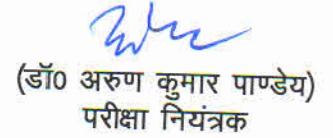 (डॉ0 अरुण कुमार पाण्डेय)
परीक्षा नियंत्रक